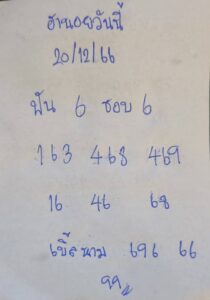 ฮานอยวันนี้
20/12/66
ฟัน 6 ชอบ 6
163 468 469
16 46 68
เบิ้ลหาม 696 66
99